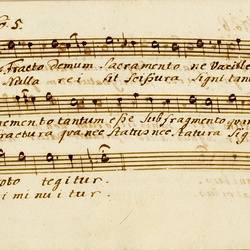 5.
Fracto demum Sacramento ne Vacille
Nulla rei fit Scissura Signi tan
memento tantum esse Sub fragmento quan
fractura qua nec Status nec statura Sig
toto tegitur.
iminuitur.